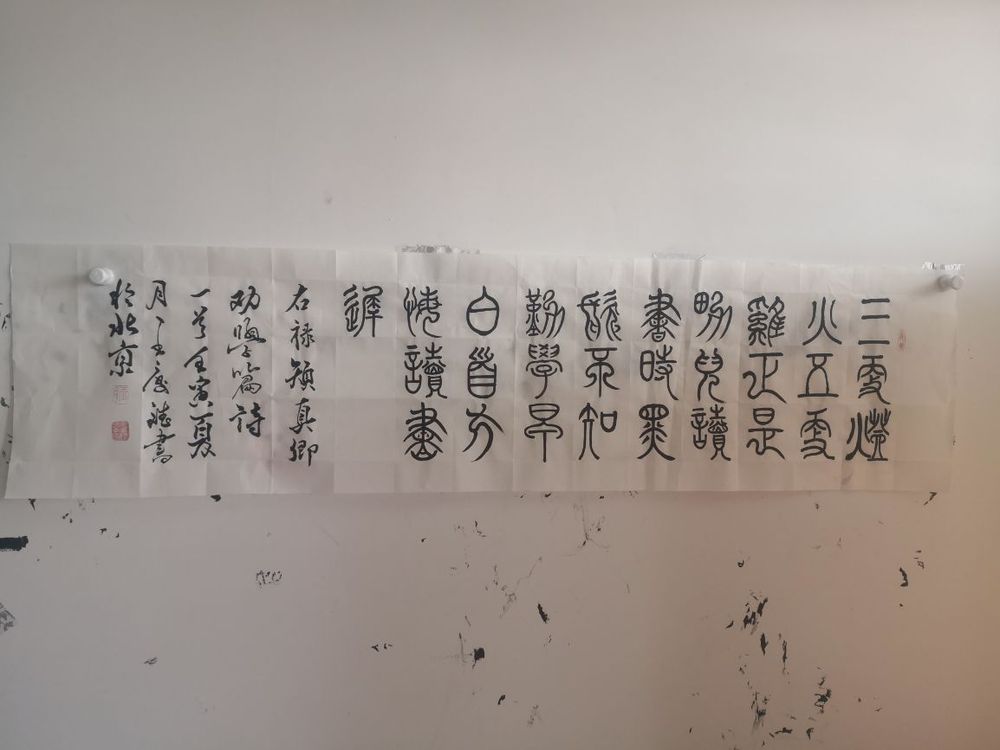 三更燈
火五更
雞正是
男兒讀
書時黑
髮不知
勤學早
白首方
悔讀書
遲
右録顏真卿
劝學篇詩
一首壬寅夏
月書
於北京